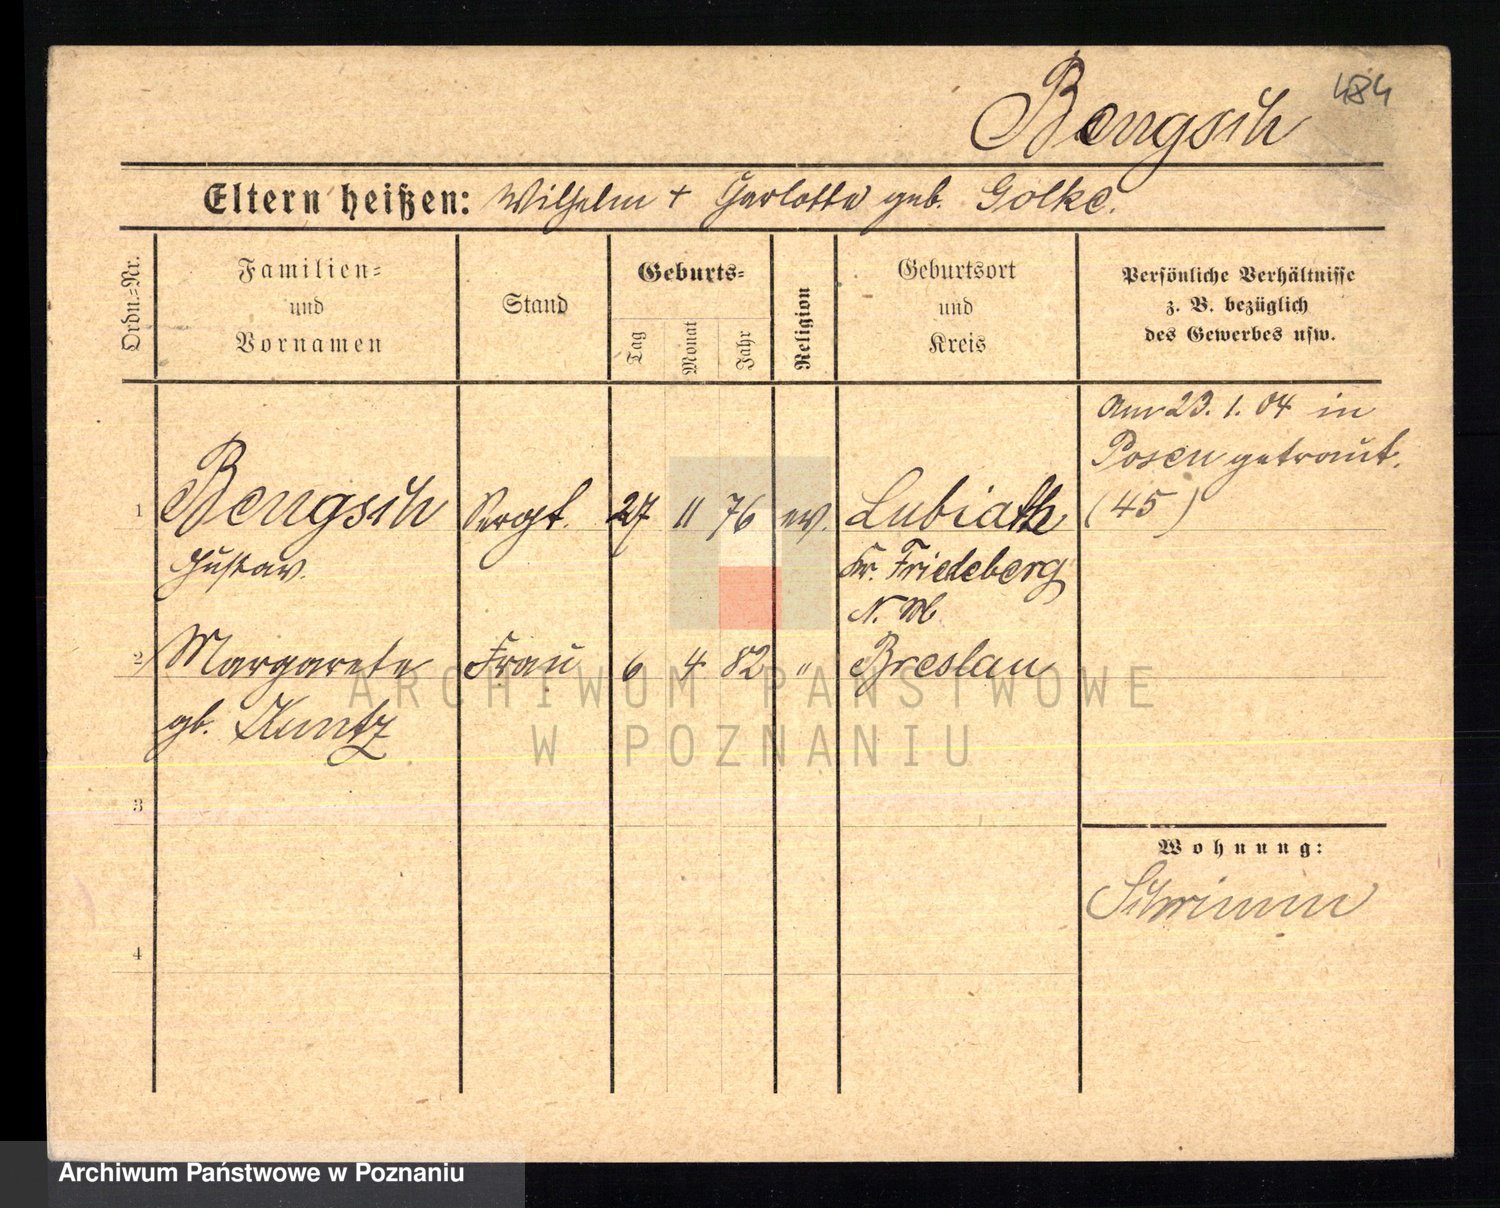 484
Bengsch
Eltern heißen: Wilhelm + Charlotte geb. Golke.
Ordn.-Nr.
Familien-
und
Vornamen
Stand
Geburts-
Tag
Monat
Jahr
Religion
Geburtsort
und
Kreis
Persönliche Verhältnisse
z. B. bezüglich
des Gewerbes usw.
Am 23. 1. 04 in
Posen getraut.
(45)
1 Bengsch Sergt. 27 11 76 ev. Lubiath
Gustav. Kr. Friedeberg
N. M.
2 Margarete Frau 6 4 82 " Breslau
gb. Kuntz
3
4
Wohnung:
Schrimm
ARCHIWUM PAŃSTWOWE
W POZNANIU
Archiwum Państwowe w Poznaniu